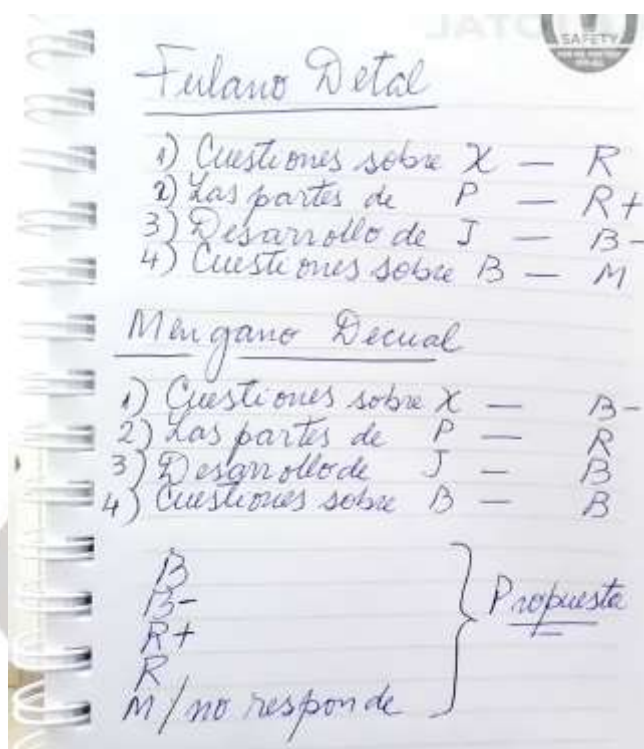 SAFETY
Fulano Detal
1) Cuestiones sobre X — R
2) Las partes de P — R+
3) Desarrollo de J — B-
4) Cuestiones sobre B — M
Mengano Decual
1) Cuestiones sobre X — B-
2) Las partes de P — R
3) Desarrollo de J — B
4) Cuestiones sobre B — B
B
B-
R+
R
M/no responde
Propuesta